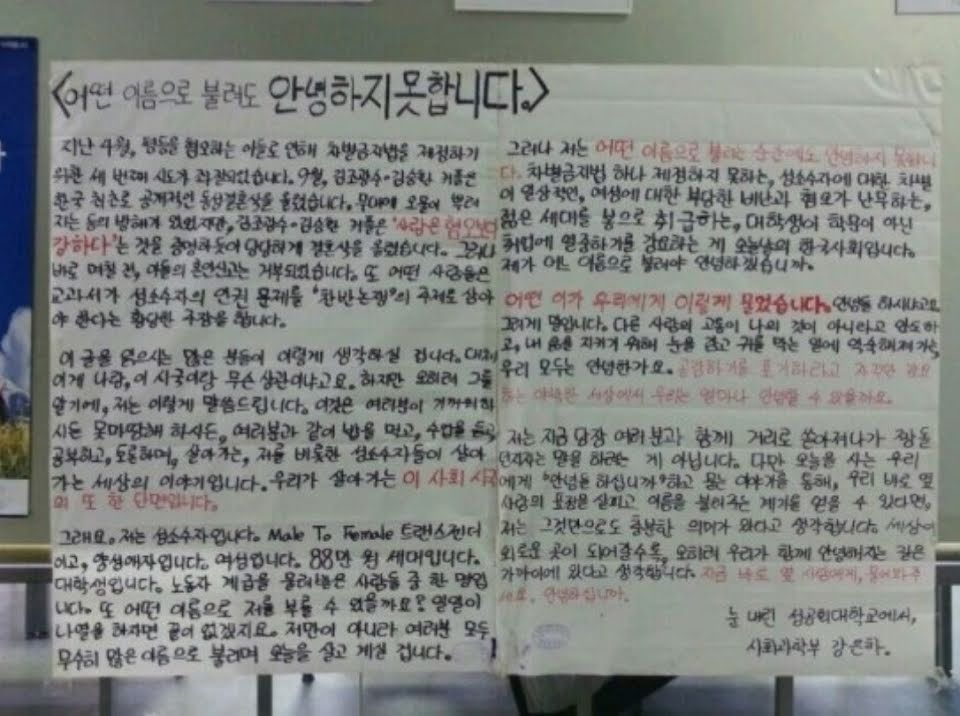 <어떤 이름으로 불려도 안녕하지못합니다.>
지난 4월, 평등을 혐오하는 이들로 인해 차별금지법을 제정하기
위한 세 번째 시도가 좌절되었습니다. 9월, 김조광수·김승환 커플은
한국 최초로 공개적인 동성결혼식을 올렸습니다. 무대에 오물이 뿌려
지는 등의 방해가 있었지만, 김조광수·김승환 커플은 "사랑은 혐오보다
강하다"는 것을 증명하듯이 당당하게 결혼식을 올렸습니다. 그러나
바로 며칠 전, 이들의 혼인신고는 거부되었습니다. 또 어떤 사람들은
교과서가 성소수자의 인권 문제를 "찬반논쟁"의 주제로 삼아
야 한다는 황당한 주장을 합니다.
이 글을 읽으시는 많은 분들이 이렇게 생각하실 겁니다. 대체
이게 나랑, 이 시국이랑 무슨 상관이냐고요. 하지만 오히려 그를
알기에, 저는 이렇게 말씀드립니다. 이것은 여러분이 가까워하
시든 못마땅해 하시든, 여러분과 같이 밥을 먹고, 수업을 듣고
공부하고, 토론하며, 살아가는, 저를 비롯한 성소수자들이 살아
가는 세상의 이야기입니다. 우리가 살아가는 이 사회 시국
의 또 한 단면입니다.
그래요. 저는 성소수자입니다. Male To Female 트랜스젠더
이고, 양성애자입니다. 여성입니다. 88만 원 세대입니다.
대학생입니다. 노동자 계급을 물려받은 사람들 중 한 명입
니다. 또 어떤 이름으로 저를 부를 수 있을까요? 일일이
나열을 하자면 끝이 없겠지요. 저만이 아니라 여러분 모두
무수히 많은 이름으로 불리며 오늘을 살고 계실 겁니다.
그러나 저는 어떤 이름으로 불리는 순간에도 안녕하지 못합니
다. 차별금지법 하나 제정하지 못하는, 성소수자에 대한 차별
이 일상적인, 여성에 대한 부당한 비난과 혐오가 난무하는,
젊은 세대를 봉으로 취급하는, 대학생이 학문이 아닌
취업에 열중하기를 강요하는 게 오늘날의 한국사회입니다.
제가 어느 이름으로 불려야 안녕하겠습니까.
어떤 이가 우리에게 이렇게 물었습니다. 안녕들 하시냐고요.
그러게 말입니다. 다른 사람의 고통이 나의 것이 아니라고 안도하
고, 내 몸을 지키기 위해 눈을 감고 귀를 막는 일에 익숙해져가는,
우리 모두는 안녕한가요. 공감하기를 포기하라고 자꾸만 강요
하는 야박한 세상에서 우리는 얼마나 안녕할 수 있을까요.
저는 지금 당장 여러분과 함께 거리로 쏟아져나가 짱돌을
던지자는 말을 하려는 게 아닙니다. 다만 오늘을 사는 우리
에게 "안녕들 하십니까"하고 묻는 이야기를 통해, 우리 바로 옆
사람의 표정을 살피고 이름을 불러주는 계기를 얻을 수 있다면,
저는 그것만으로도 충분한 의미가 있다고 생각합니다. 세상이
외로운 곳이 되어갈수록, 오히려 우리가 함께 안녕해지는 길은
가까이에 있다고 생각합니다. 지금 바로 옆 사람에게, 물어봐주
세요. 안녕하십니까.
눈 내린 성공회대학교에서,
사회과학부 강은하.